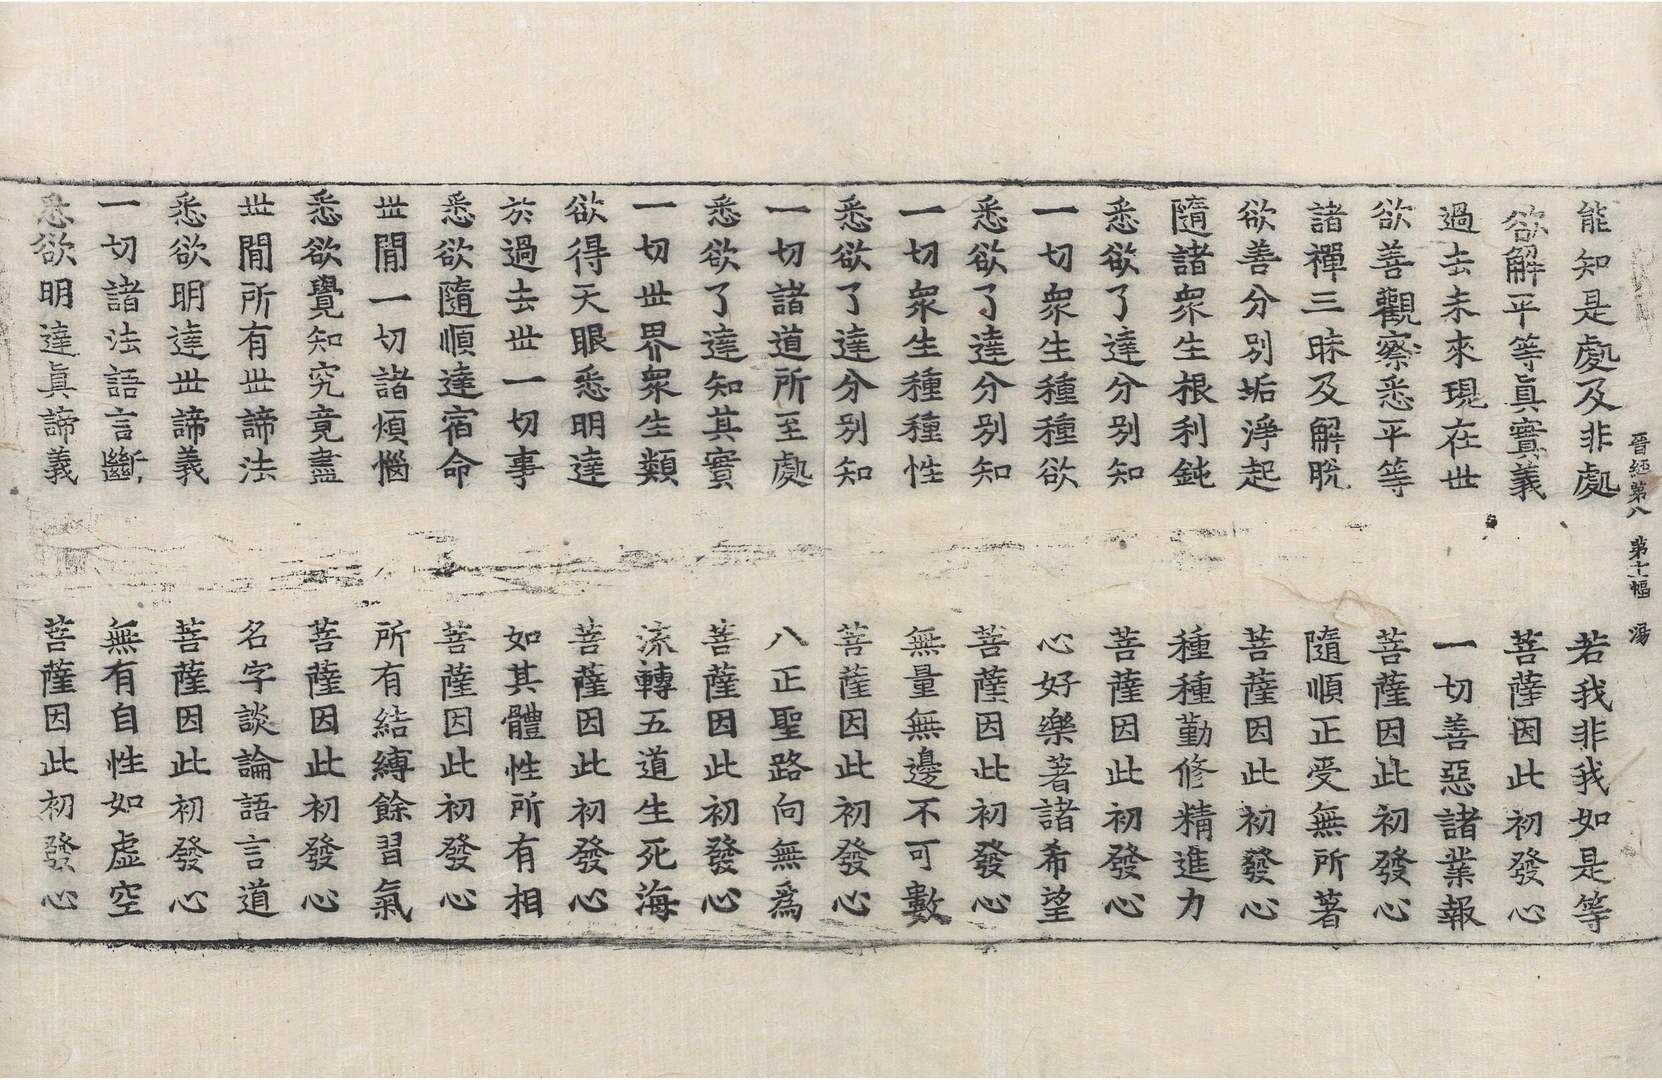 晉經第八 第十一幅 湯
能知是處及非處 若我非我如是等
欲解平等眞實義 菩薩因此初發心
過去未來現在世 一切善惡諸業報
欲善觀察悉平等 菩薩因此初發心
諸禪三昧及解脫 隨順正受無所著
欲善分別垢淨起 菩薩因此初發心
隨諸衆生根利鈍 種種勤修精進力
悉欲了達分別知 菩薩因此初發心
一切衆生種種欲 心好樂著諸希望
悉欲了達分別知 菩薩因此初發心
一切衆生種種性 無量無邊不可數
悉欲了達分別知 菩薩因此初發心
一切諸道所至處 八正聖路向無爲
悉欲了達知其實 菩薩因此初發心
一切世界衆生類 流轉五道生死海
欲得天眼悉明達 菩薩因此初發心
於過去世一切事 如其體性所有相
悉欲隨順達宿命 菩薩因此初發心
世閒一切諸煩惱 所有結縛餘習氣
悉欲覺知究竟盡 菩薩因此初發心
世閒所有世諦法 名字談論語言道
悉欲明達世諦義 菩薩因此初發心
一切諸法語言斷 無有自性如虛空
悉欲明達眞諦義 菩薩因此初發心